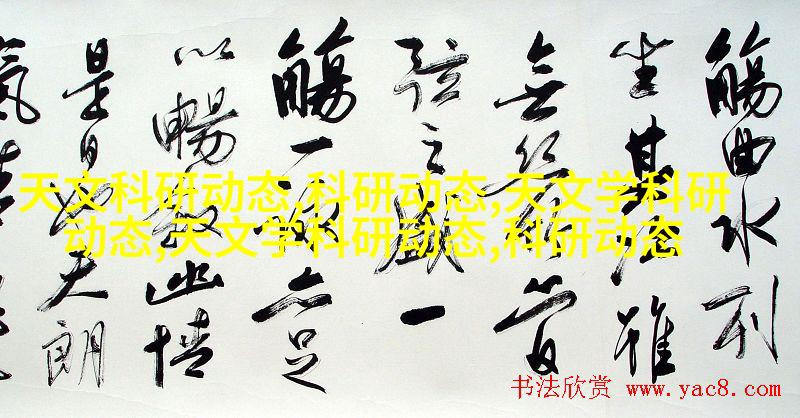 觴曲水列
坐其次雖
無絲竹管
弦之盛一
觴一詠亦足
以暢敘幽情
是日也天朗
氣清
天文科研动态,科研动态,天文学科研
动态,天文学科研动态,科研动态
书法欣赏 www.yac8.com